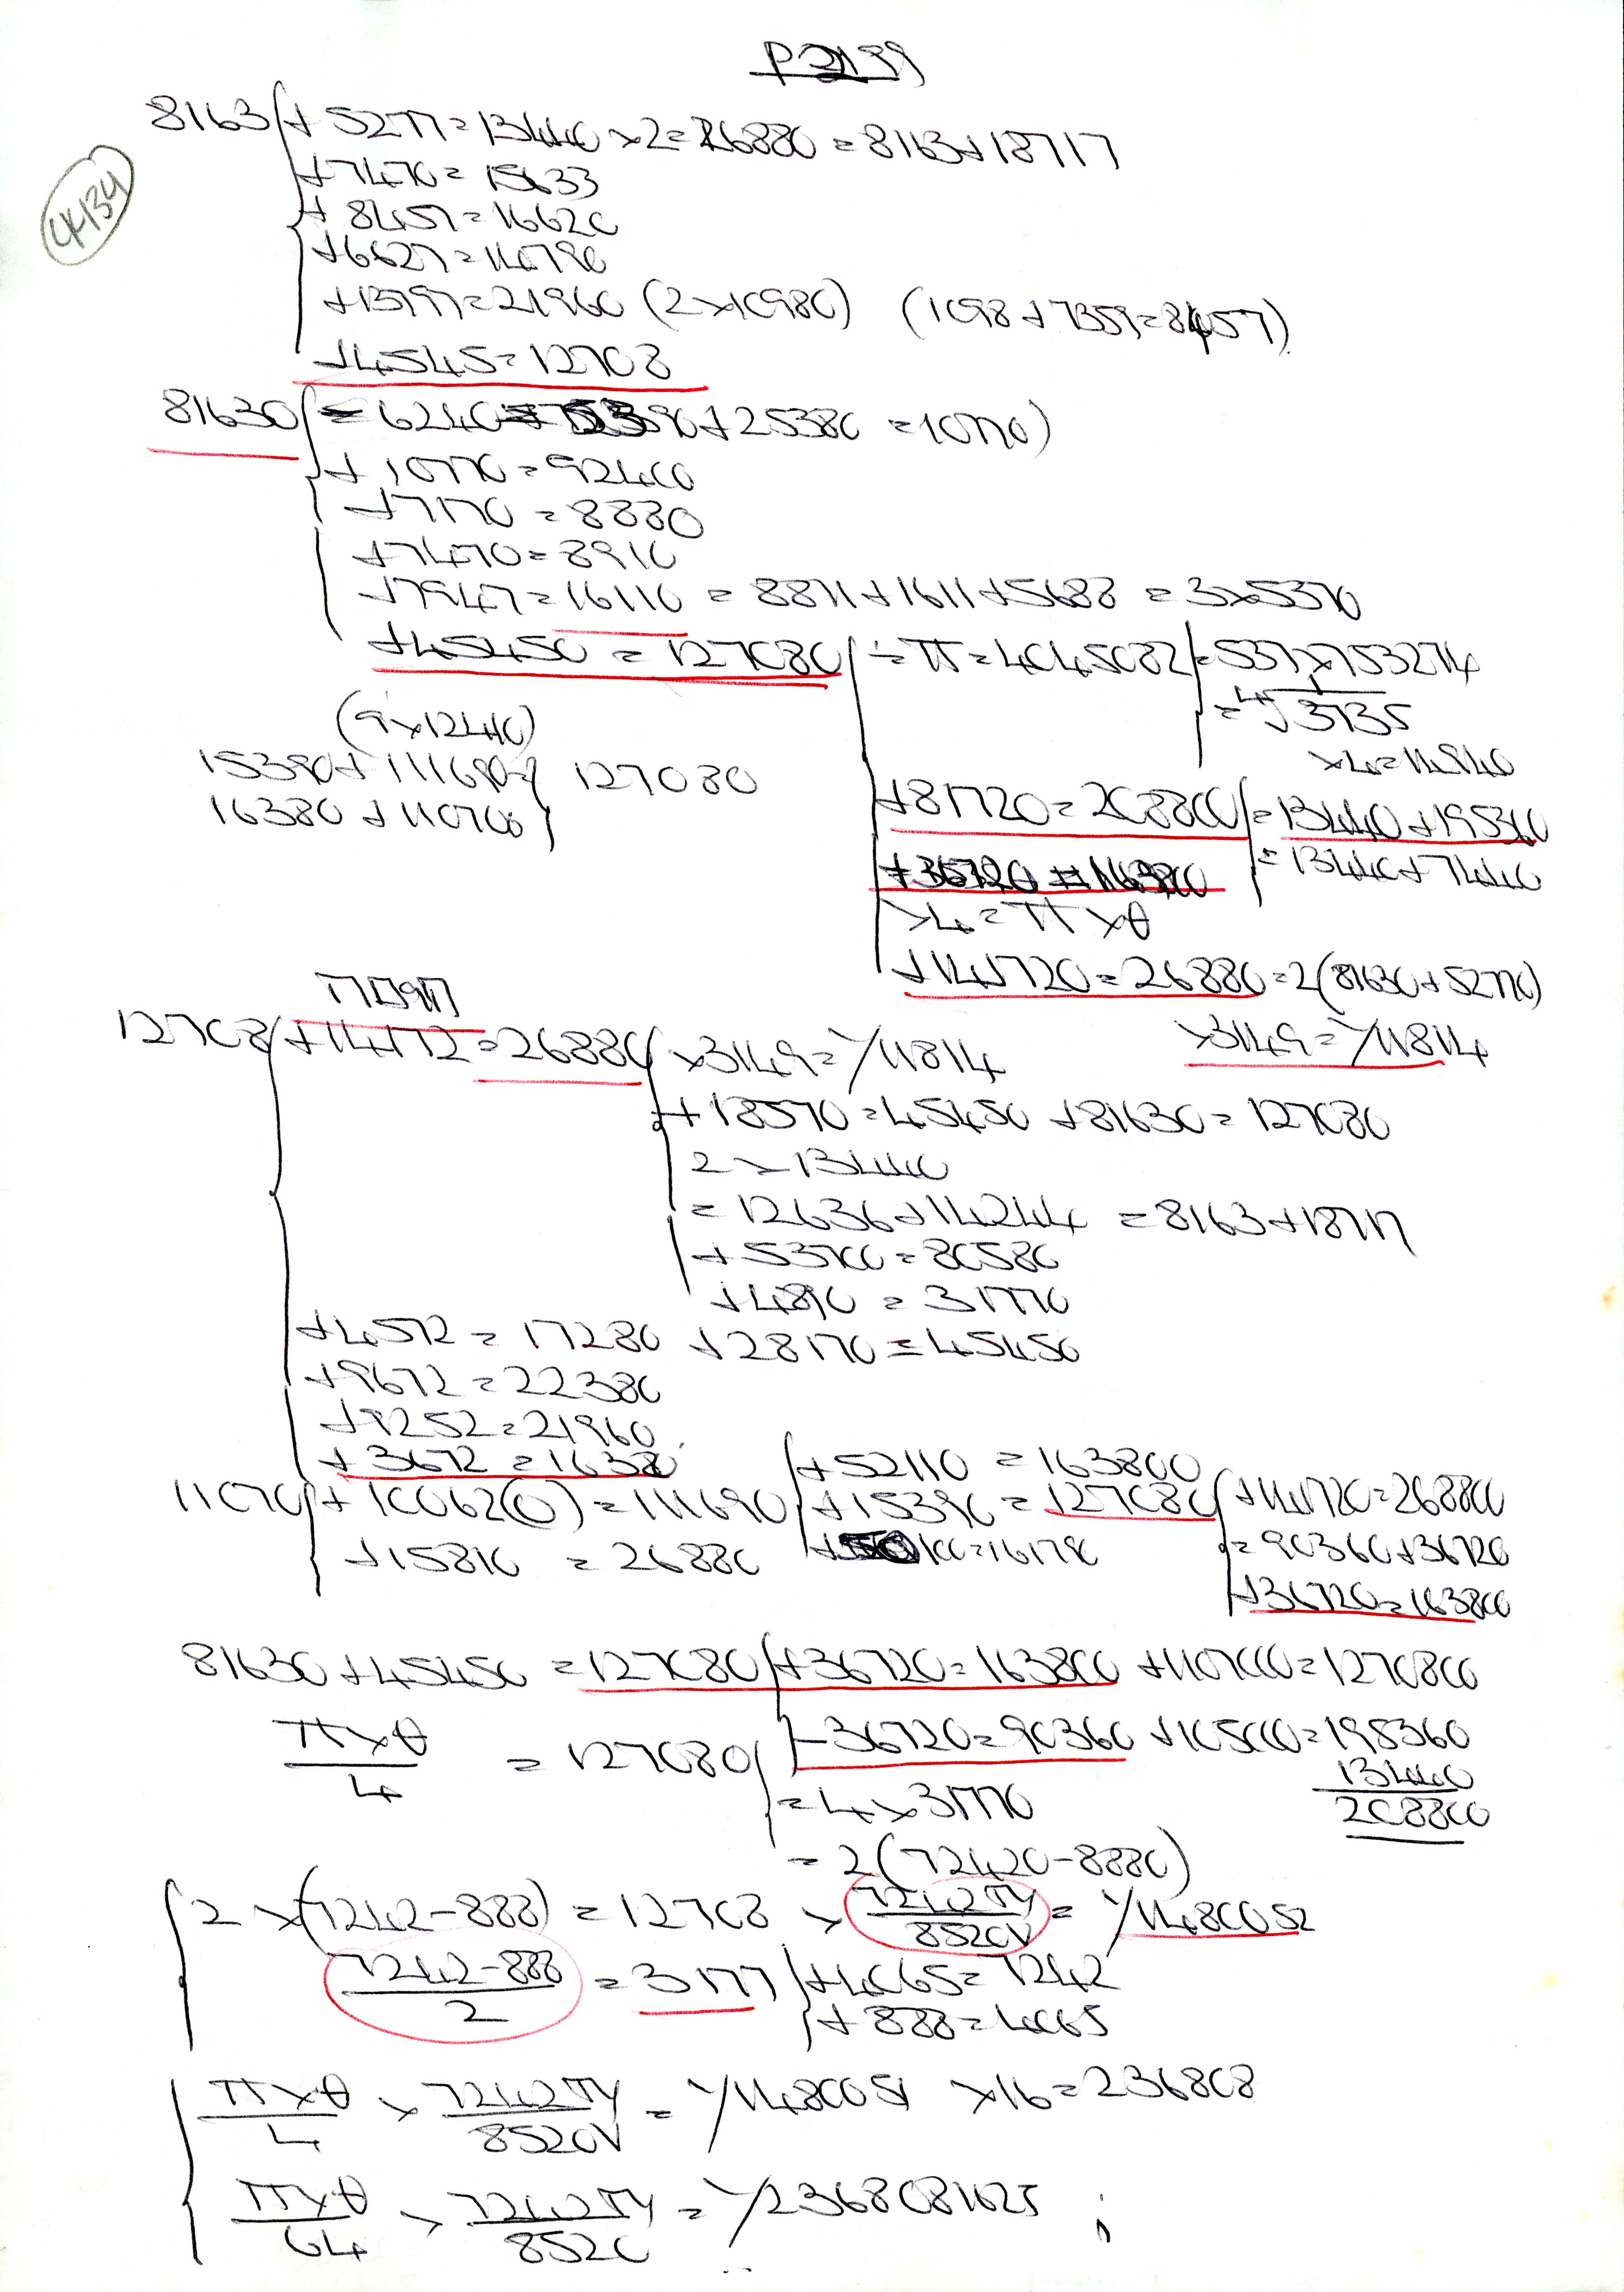 P2199
4134
8163 + 5277 = 13440 × 2 = 26880 = 8163 + 18717
+ 7470 = 15633
+ 8457 = 16620
+ 6627 = 14790
+ 13797 = 21960 (2 × 10980) (1098 + 7359 = 8457)
+ 4545 = 12708
81630 = 6240 + 25380 = 10770)
+ 10770 = 92400
+ 7170 = 8880
+ 7470 = 8910
+ 7947 = 16110 = 8811 + 1611 + 5688 = 3 × 5370
+ 45450 = 127080 ÷ π = 4045082 = 537 × 753274
= ∜3735
(9 × 12410) × 4 = 14940
15390 + 111690 } 127080
16380 + 110700
+ 81720 = 208800 = 13440 + 195360
= 13440 + 7440
× 4 = π × θ
+ 141720 = 26880 = 2(81630 + 52770)
12708 + 14172 = 26880 × 3149 = 1/11814 × 3149 = 1/11814
+ 18570 = 45450 + 81630 = 127080
2 × 13440
= 12636 + 14244 = 8163 + 18717
+ 53700 = 80580
+ 4890 = 31770
+ 4572 = 17280 + 28170 = 45450
+ 9672 = 22380
+ 9252 = 21960
+ 3672 = 16380
+ 52110 = 163800
11070 + 10062(0) = 111690 + 15390 = 127080 + 141720 = 268800
+ 15810 = 26880 = 90360 + 36720
+ 36720 = 163800
81630 + 45450 = 127080 + 36720 = 163800 + 1107000 = 1270800
π × θ / 4 = 127080 - 36720 = 90360 + 105000 = 195360
13440
= 4 × 31770
208800
= 2(72420 - 8880)
2 × (7242 - 888) = 12708 × 7242πy / 8520V = 1/1480052
7242 - 888 / 2 = 3177 + 4065 = 7242
+ 888 = 4065
π × θ / 4 × 7242πy / 8520V = 1/1480051 × 16 = 236808
π × θ / 64 × 7242πy / 8520 = 1/2368081625 ;